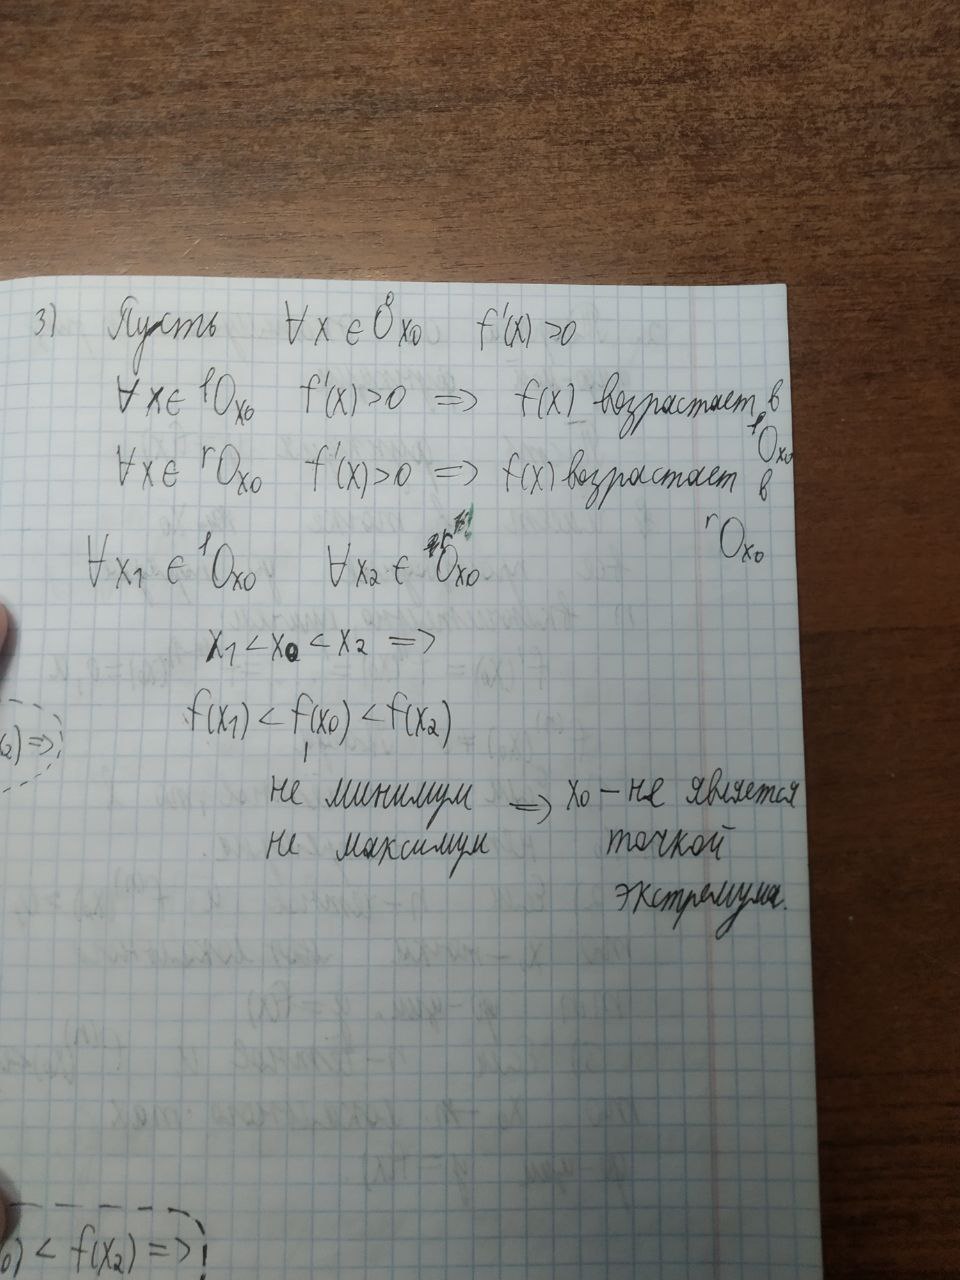 3) Пусть ∀x ∈ O̊x₀ f'(x) >0
∀x ∈ ˡOx₀ f'(x) >0 => f(x) возрастает в
ˡOx₀
∀x ∈ ʳOx₀ f'(x) >0 => f(x) возрастает в
ʳOx₀
∀x₁ ∈ ˡOx₀ ∀x₂ ∈ ʳOx₀
x₁ < x₀ < x₂ =>
f(x₁) < f(x₀) < f(x₂)
₂) =>
не минимум => x₀ – не является
не максимум точкой
экстремума.
₀) < f(x₂) =>